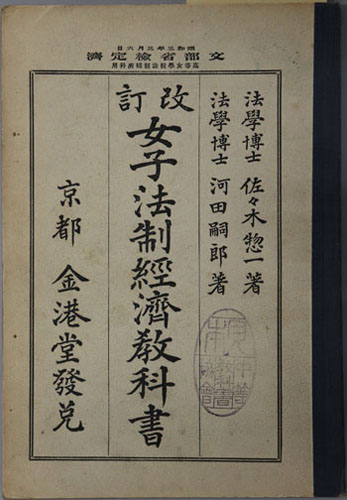 昭和三年三月六日
文部省檢定濟
高等女學校法制經濟科用
法學博士 佐々木惣一著
法學博士 河田嗣郎著
改訂
女子法制經濟教科書
京都 金港堂發兌